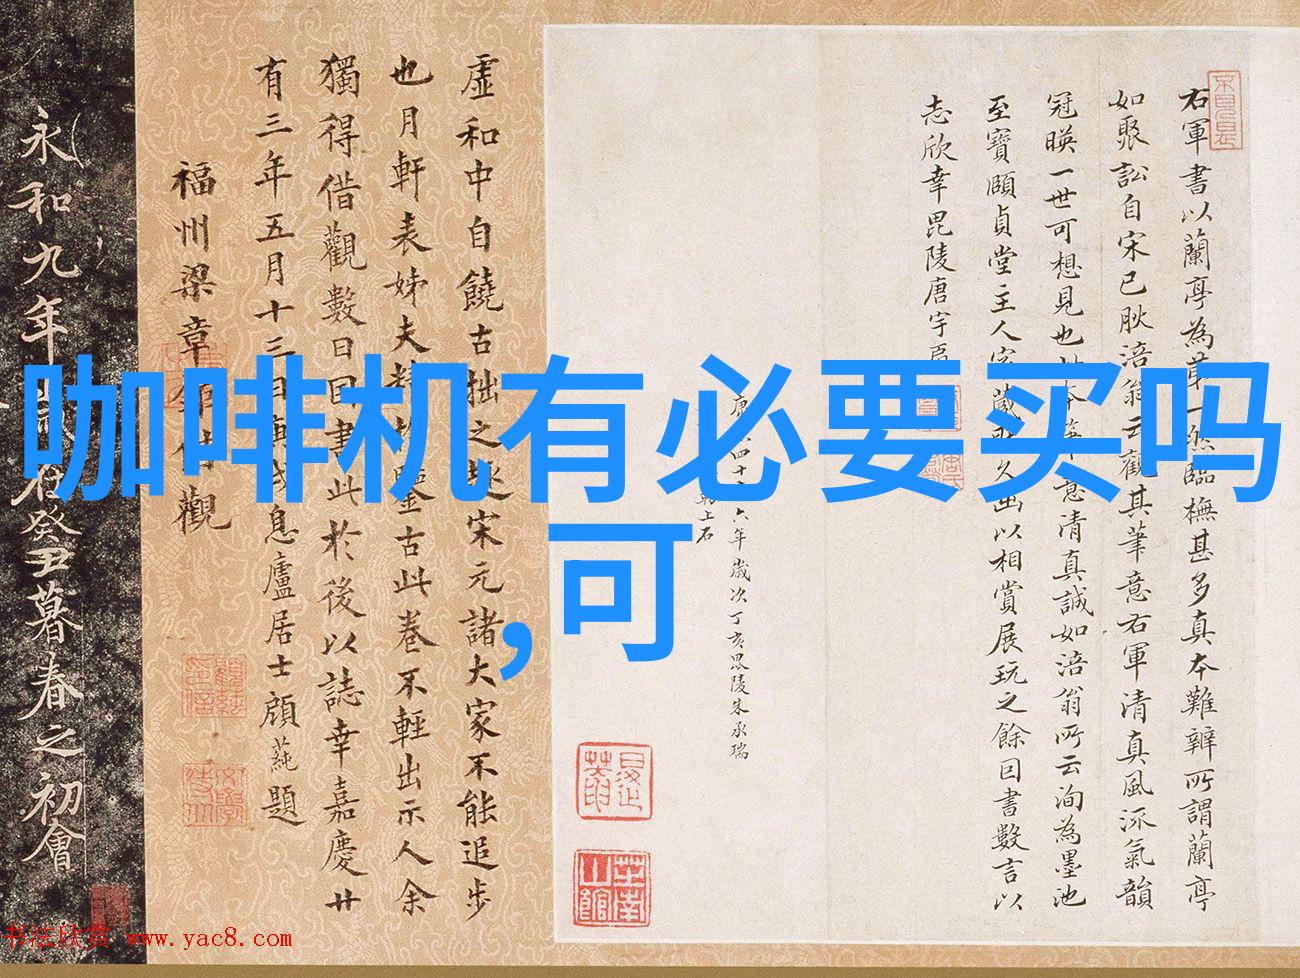 咖啡机有必要买吗
,可
右軍書以蘭亭為茅一然臨橅甚多真本難辨所謂蘭亭
如聚訟自宋已耿涪翁云觀其筆意右軍清真風流氣韻
冠暎一世可想見也
意清真誠如涪翁所云洵為墨池
至寶頤貞堂主人
以相賞展玩之餘因書數言以
志欣幸毘陵唐宇
四十
六年歲次丁亥毘陵朱承瑞
上石
虛和中自饒古拙之趣宋元諸大家不能追步
也月軒表姊夫
鑒古此卷不輕出示人余
獨得借觀數日因書此於後以誌幸嘉慶廿
有三年五月十三日
息廬居士顧蒓題
福州梁章
觀
永和九年
癸丑暮春之初會
书法欣赏 www.yac8.com